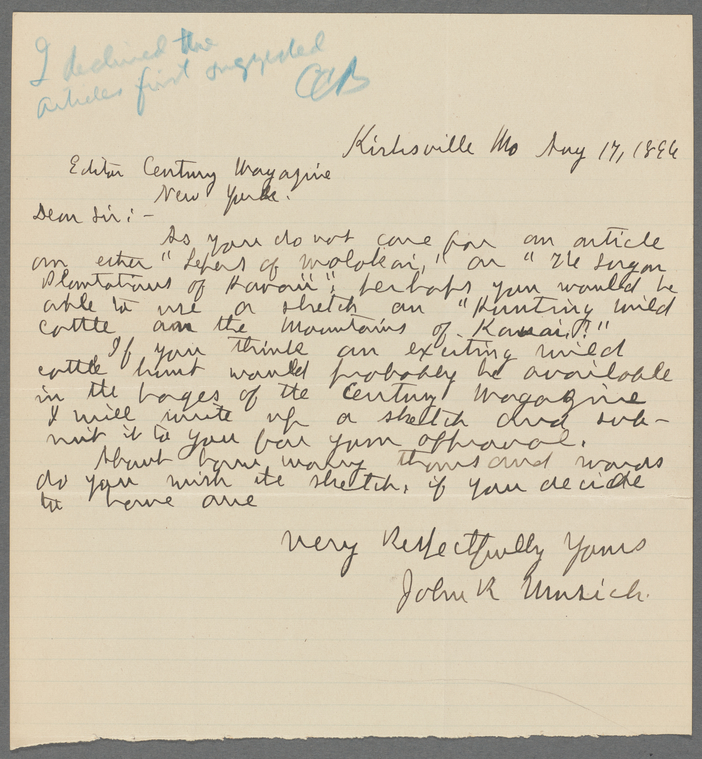 I declined the
articles first suggested
CCB
Kirksville Mo Aug 17, 1896
Editor Century Magazine
New York.
Dear Sir:-
As you do not care for an article
on either "Lepers of Molokai," or "The Sugar
Plantations of Hawaii"; perhaps you would be
able to use a sketch on "Hunting wild
cattle on the Mountains of Kauai,?"
If you think an exciting wild
cattle hunt would probably be available
in the pages of the Century Magazine
I will write up a sketch and sub-
mit it to you for your approval.
About how many thousand words
do you wish the sketch, if you decide
to have one
Very Respectfully Yours
John R Musick.